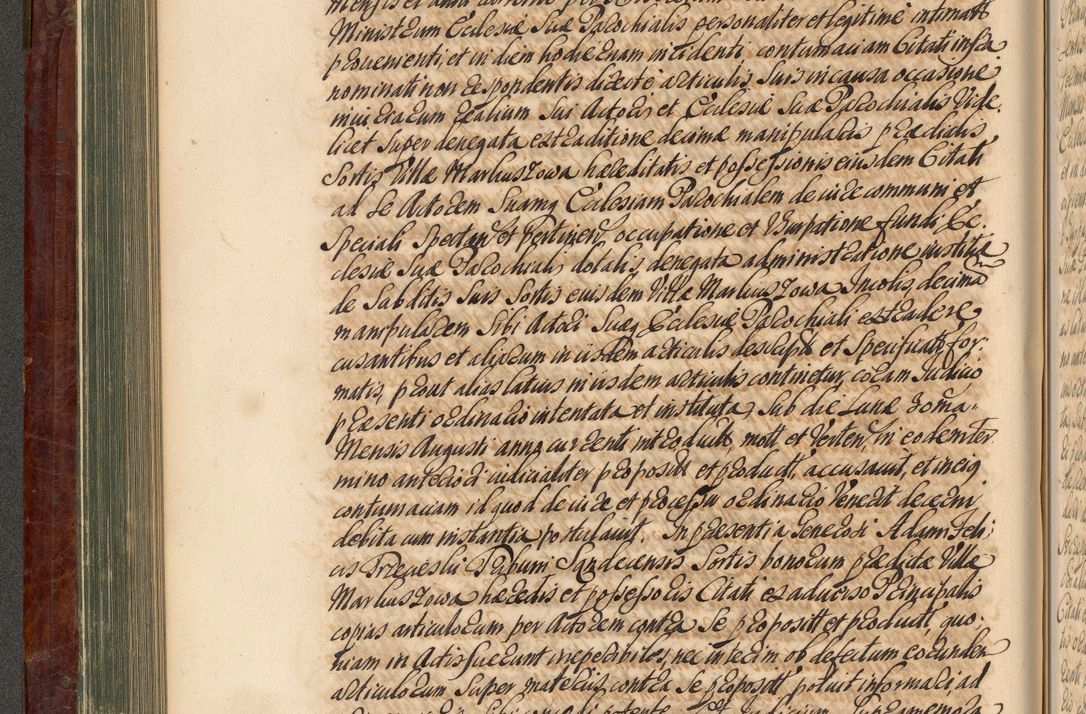 Ministrum Ecclesiæ Suæ Parochialis personaliter et legitime intimatt
provenienti, et in diem hodiernam incidenti, contumaciam Citati infra
nominati non respondentis directe articulis Suis in causa occasione
iniuriarum realium Sui Actoris et Ecclesiæ Suæ Parochialis Vide,
licet Super denegata extraditione decimæ manipularis prædialis
Sortis Villæ Markuszowa hæreditatis et possessionis eiusdem Citati
ad Se Actorem Suamq Ecclesiam Parochialem de iure communi et
Speciali Spectan et pertinen, occupatione et Usurpatione fundi Ec,
clesiæ Suæ Parochialis dotalis, denegata administratione iustitiæ
de Subditis Suis Sortis eiusdem Villæ Markuszowa Incolis, decimam
manipularem Sibi Actori Suæq Ecclesiæ Parochiali extradere re,
cusantibus et aliarum in iisdem articulis descript et Specificatt for,
matis, prout alias latius in iisdem articulis continetur, coram Iudicio
præsenti ordinario intentata et instituta, Sub die Lunæ
Mensis Augusti anni currenti introduct, mott et Verten, in eodem ter,
mino anteriori iudicialiter proposit et product, accusavit, et in eiq
contumaciam id quod de iure et processu ordinario Venerit decerni
debita cum instantia postulavit. In præsentia Generosi Adami Feli,
cis Tribuni Sandecensis Sortis bonorum prædictæ Villæ
Markuszowa hæredis et possessoris Citati ex adverso Principalis
copias articulorum per Actorem contra Se proposit et product, quo,
niam in Actis fuerunt irreperibiles, nec interim ob defectum eorundem
articulorum Super materiis, contra Se proposit, potuit informari, ad